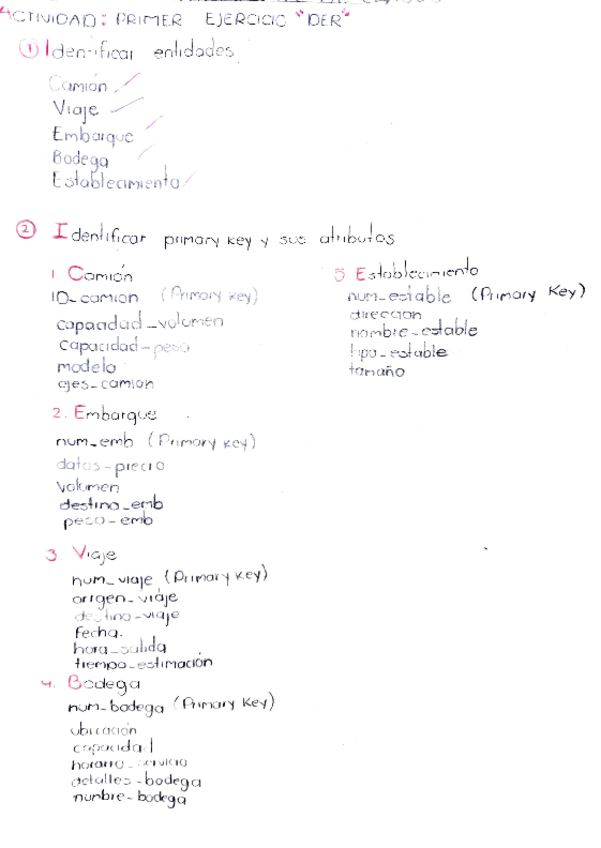 ACTIVIDAD: PRIMER EJERCICIO "DER"
① Identificar entidades
Camión
Viaje
Embarque
Bodega
Establecimiento
② Identificar primary key y sus atributos
1 Camión
ID_camion (Primary key)
capacidad_volumen
capacidad_peso
modelo
ejes_camion
2. Embarque
num_emb (Primary key)
datos-precio
volumen
destino_emb
peso-emb
3 Viaje
num_viaje (Primary key)
origen_viaje
destino_viaje
fecha.
hora_salida
tiempo_estimación
4. Bodega
num_bodega (Primary Key)
ubicación
capacidad
horario_servicio
detalles-bodega
nunbre-bodega
5 Establecimiento
num-estable (Primary Key)
direccion
nombre-estable
tipo_estable
tamaño